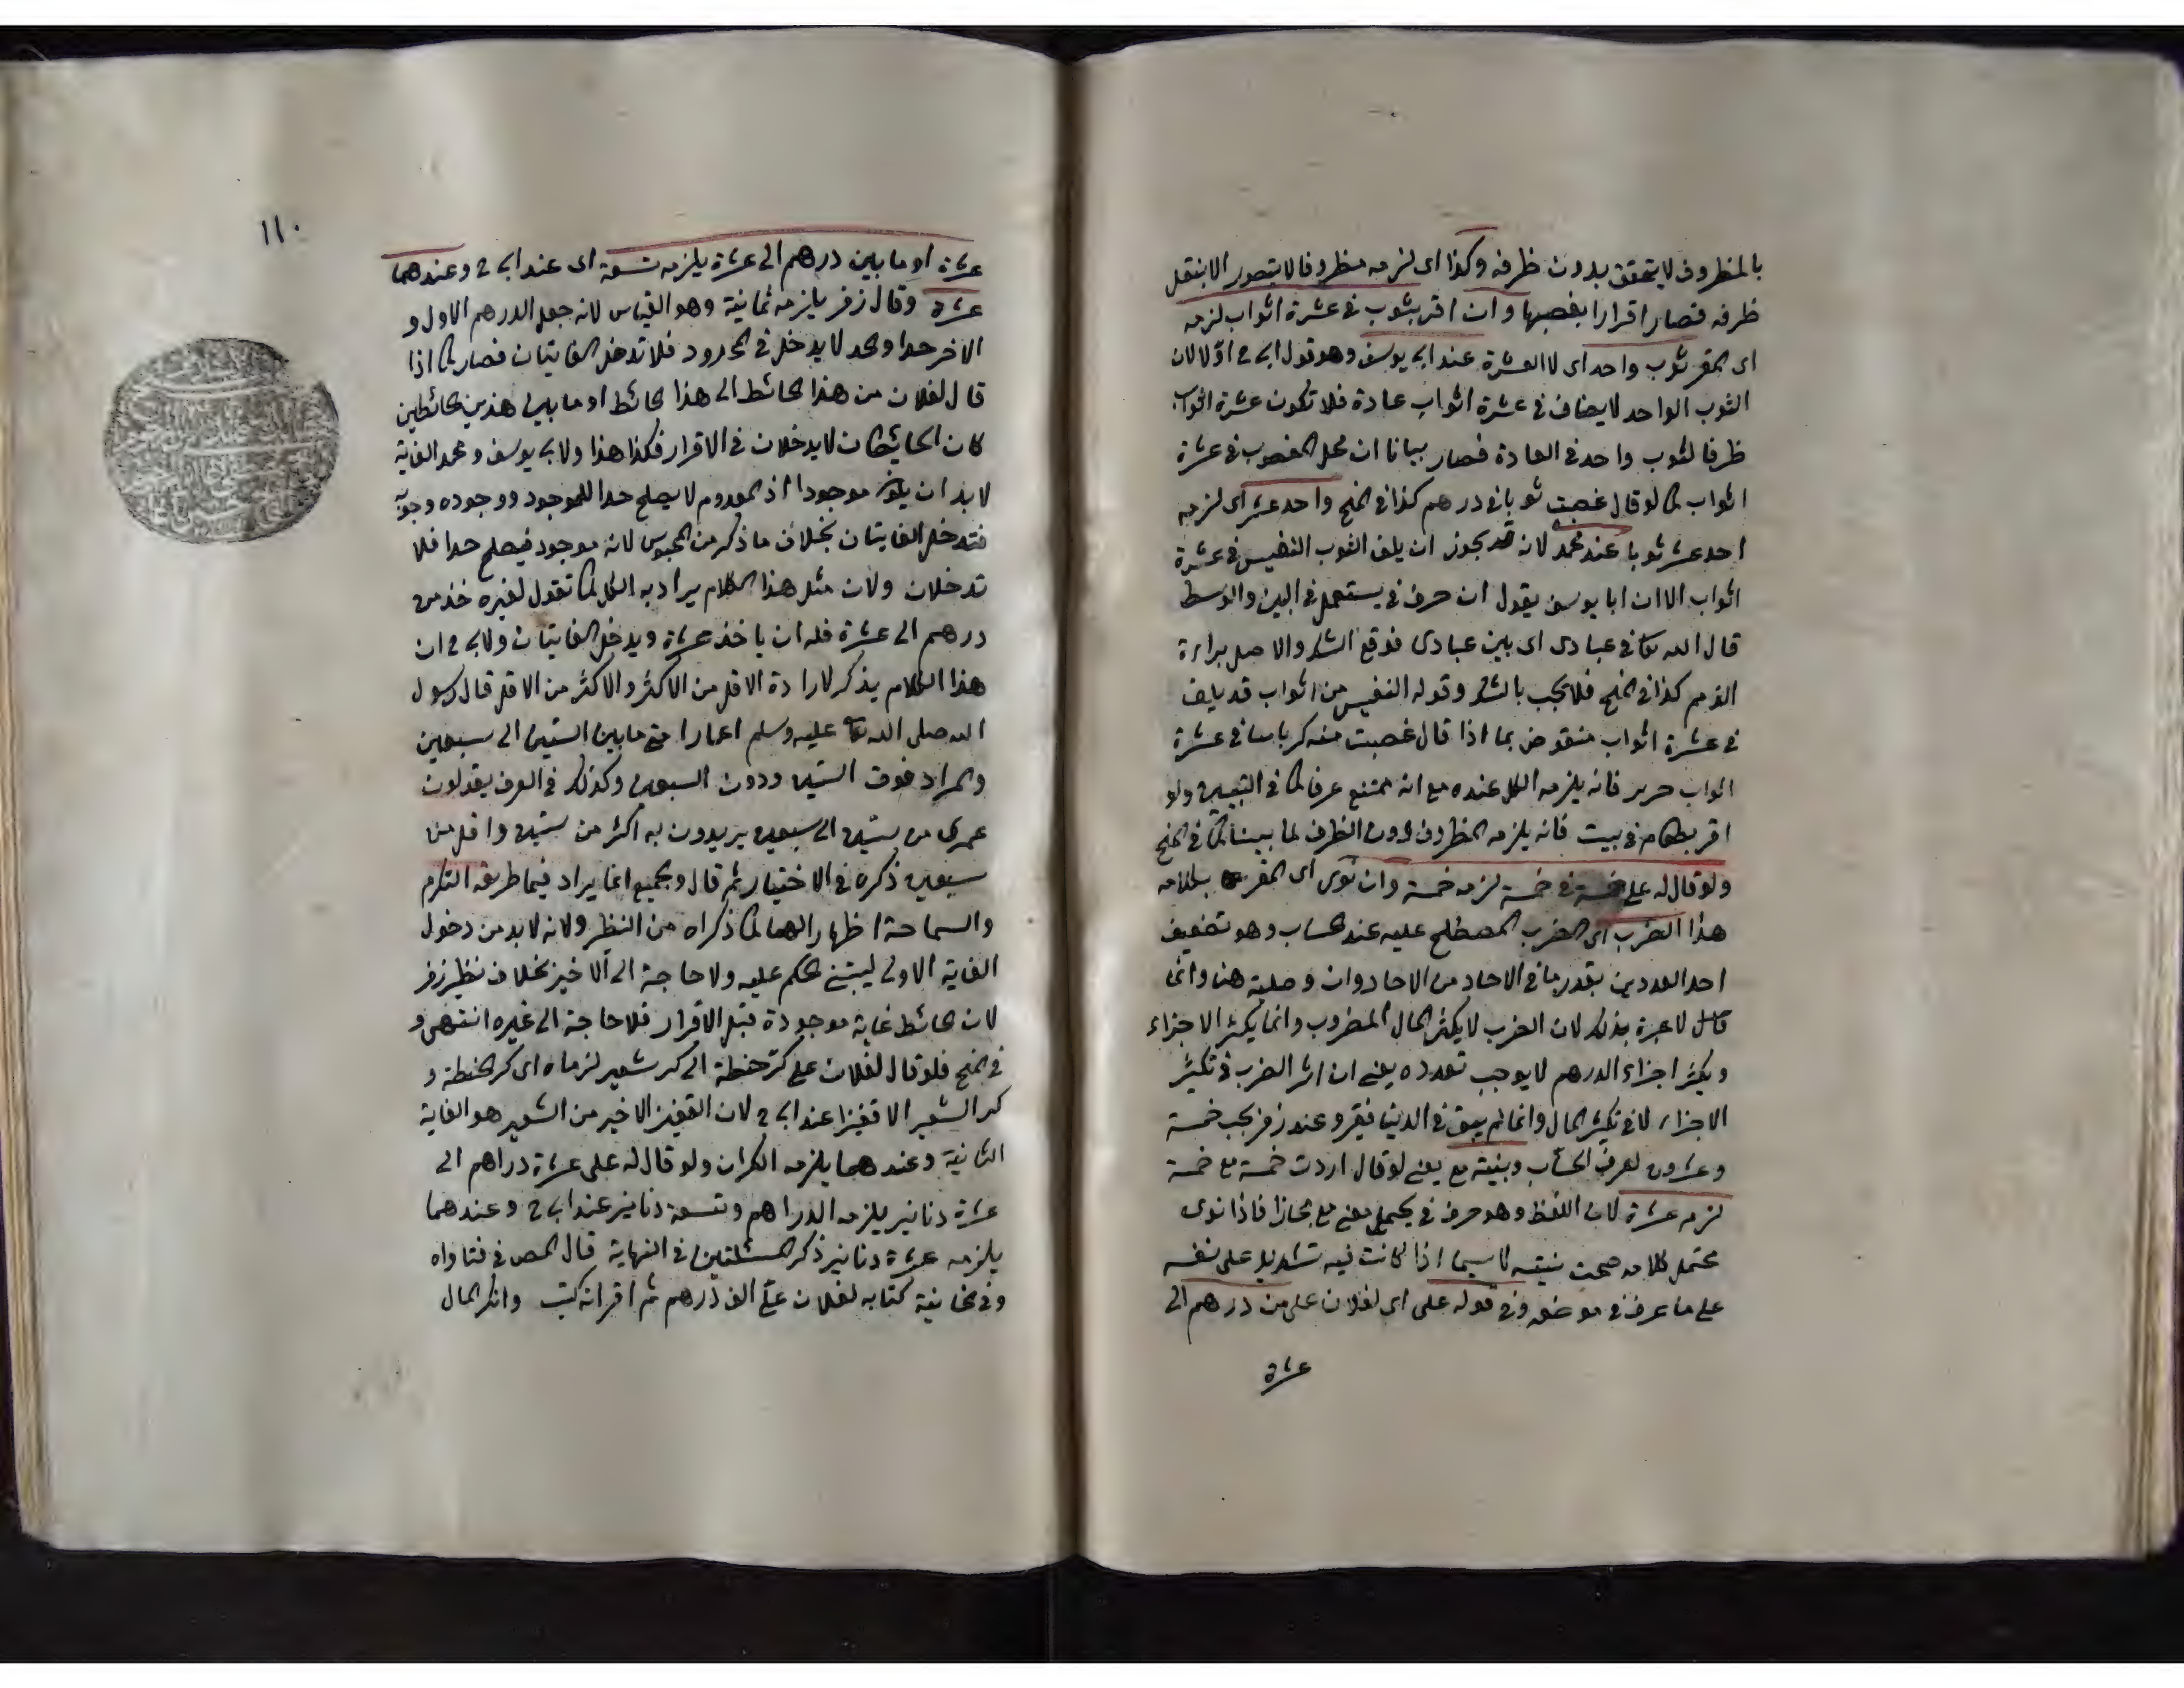 بالمظروف لا يتحقق بدون ظرفه وكذا اى لزمه مظروفا لا يتصور الا بنقل
ظرفه فصار اقرارا بغصبها وان اقر بثوب فى عشرة اثواب لزمه
اى المقر ثوب واحد اى لا العشرة عند ابى يوسف وهو قول ابى ح اولا لان
الثوب الواحد لا يضاف فى عشرة اثواب عادة فلا تكون عشرة اثواب
ظرفا لثوب واحد فى العادة فصار بيانا ان محل المغصوب فى عشرة
اثواب كما لو قال غصبت ثوبا فى درهم كذا فى المنح واحد عشر اى لزمه
احد عشر ثوبا عند محمد لانه قد يجوز ان يلف الثوب النفيس فى عشرة
اثواب الا ان ابا يوسف يقول ان حرف فى يستعمل فى البين والوسط
قال الله تعا فى عبادى اى بين عبادى فوقع الشك والاصل براءة
الذمم كذا فى المنح فلا يجب بالشك وقوله النفيس من اثواب قد يلف
فى عشرة اثواب منقوض بما اذا قال غصبت منه كرباسا فى عشرة
اثواب حرير فانه يلزمه الكل عنده مع انه ممتنع عرفا كما فى التبيين ولو
اقر بطعام فى بيت فانه يلزمه المظروف دون الظرف لما بينا كما فى المنح
ولو قال له على خمسة فى خمسة لزمه خمسة وان نوى اى المقر بكلامه
هذا الضرب اى الضرب المصطلح عليه عند الحساب وهو تضعيف
احد العددين بقدر ما فى الاحاد من الاحاد وان وصلية هنا وانما
قال لا عبرة بذلك لان الضرب لا يكثر المال المضروب وانما يكثر الاجزاء
وتكثر اجزاء الدرهم لا يوجب تعدده يعنى ان اثر الضرب فى تكثير
الاجزاء لا فى تكثير المال وانما لم يبق فى الدنيا فقير وعند زفر يجب خمسة
وعشرون لعرف الحساب وبنية مع يعنى لو قال اردت خمسة مع خمسة
لزمه عشرة لان اللفظ وهو حرف فى يحتمل معنى مع مجازا فاذا نوى
محتمل كلامه صحت نيته لا سيما اذا كانت فيه تشديد على نفسه
على ما عرف فى موضعه وفى قوله على اى لفلان على من درهم الى
عشرة
١١٠
عشرة او ما بين درهم الى عشرة يلزمه تسعة اى عند ابى ح وعندهما
عشرة وقال زفر يلزمه ثمانية وهو القياس لانه جعل الدرهم الاول و
الاخر حدا والحد لا يدخل فى المحدود فلا تدخل الغايتان فصار كما اذا
قال لفلان من هذا الحائط الى هذا الحائط او ما بين هذين الحائطين
كان الحايطان لا يدخلان فى الاقرار فكذا هذا ولابى يوسف ومحمد الغاية
لا بد ان يكون موجودا اذ المعدوم لا يصلح حدا للموجود ووجوده وجوبه
فتدخل الغايتان بخلاف ما ذكر من المحبوس لانه موجود فيصلح حدا فلا
تدخلان ولان مثل هذا الكلام يراد به الكل كما تقول لغيره خذ من
درهم الى عشرة فله ان ياخذ عشرة ويدخل الغايتان ولابى ح ان
هذا الكلام يذكر لارادة الاقل من الاكثر والاكثر من الاقل قال رسول
الله صلى الله تعا عليه وسلم اعمار امتى ما بين الستين الى سبعين
والمراد فوق الستين ودون السبعين وكذلك فى العرف يقولون
عمرى من ستين الى سبعين يريدون به اكثر من ستين واقل من
سبعين ذكره فى الاختيار ثم قال والجميع انما يراد فيما طريقه التكرم
والسماحة اظهار الهما كما ذكراه من النظر ولانه لا بد من دخول
الغاية الاولى ليبتنى الحكم عليه ولا حاجة الى الاخير بخلاف نظير زفر
لان الحائط غاية موجودة قبل الاقرار فلا حاجة الى غيره انتهى و
فى المنح فلو قال لفلان على كر حنطة الى كر شعير لزماه اى كر الحنطة و
كر الشعير الا قفيزا عند ابى ح لان القفيز الاخير من الشعير هو الغاية
الثانية وعندهما يلزمه الكران ولو قال له على عشرة دراهم الى
عشرة دنانير يلزمه الدراهم وتسعة دنانير عند ابى ح وعندهما
يلزمه عشرة دنانير ذكر المسئلتين فى النهاية قال المص فى فتاواه
وفى الخانية كتابه لفلان على الف درهم ثم اقر انه كتب وانكر المال